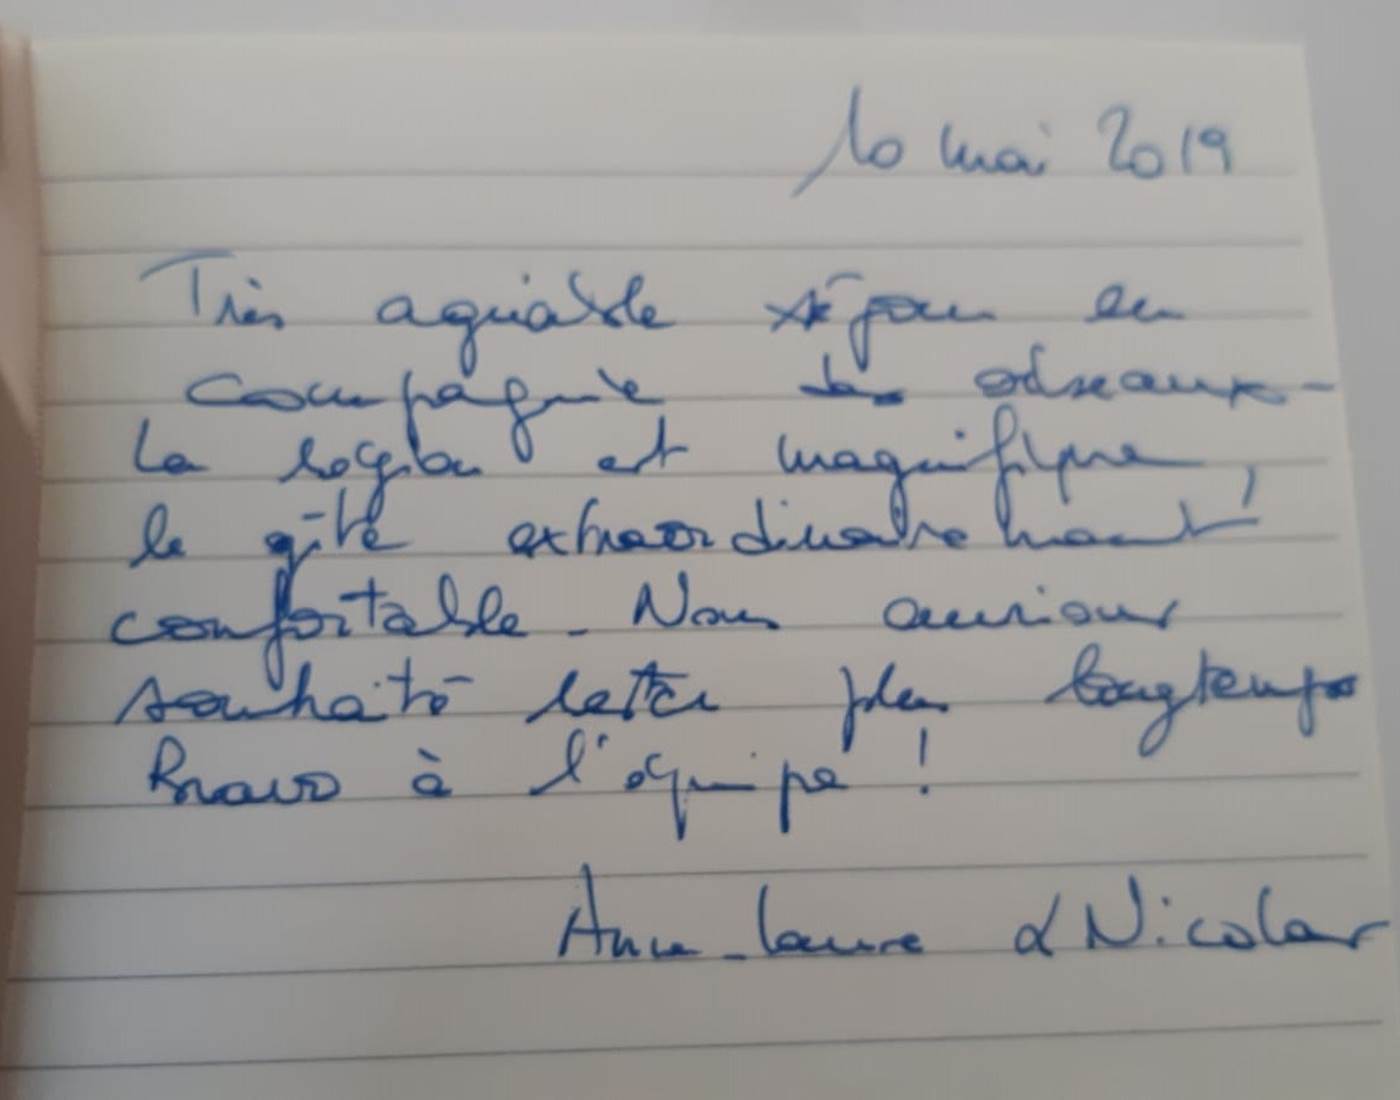 10 mai 2019
Très agréable séjour en
compagnie des oiseaux -
La région est magnifique,
le gîte extraordinairement
confortable. Nous aurions
souhaité rester plus longtemps
Bravo à l'équipe !
Anne-Laure & Nicolas